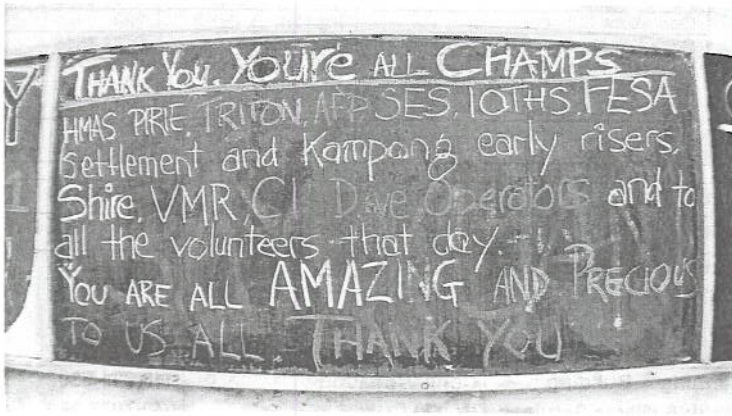 THANK YOU. YOU'RE ALL CHAMPS
HMAS PIRIE, TRITON, AFP SES, IOTHS, FESA
Settlement and Kampong early risers,
Shire, VMR, CI Dive Operators and to
all the volunteers that day.
YOU ARE ALL AMAZING AND PRECIOUS
TO US ALL. THANK YOU